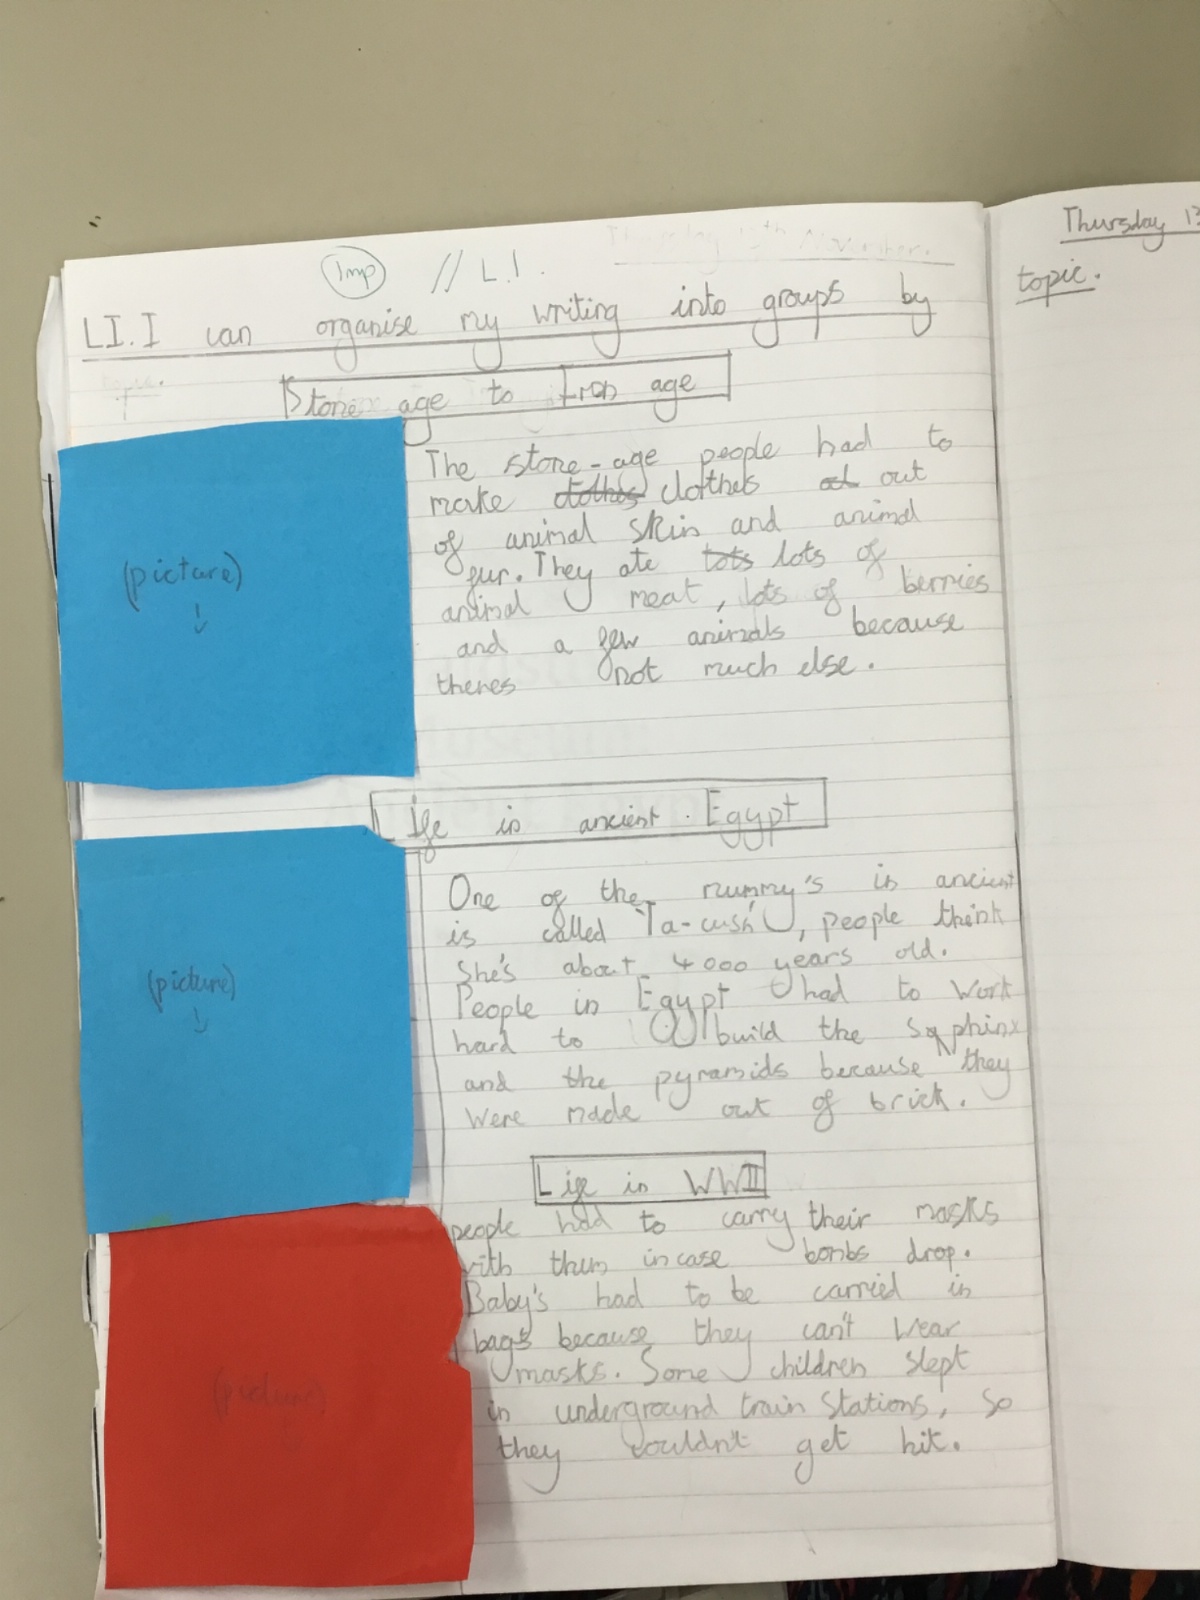 Thursday 13th November.
Imp // L.I.
LI. I can organise my writing into groups by
topic.
Stone age to Iron age
(picture)
The stone-age people had to
make clothes out
of animal skin and animal
fur. They ate lots of
animal meat, lots of berries
and a few animals because
theres not much else.
Life in ancient Egypt
(picture)
One of the mummy's in ancient
is called Ta-cush, people think
She's about 4000 years old.
People in Egypt had to work
hard to build the Sphinx
and the pyramids because they
were made out of brick.
Life in WWII
(picture)
people had to carry their masks
with them incase bombs drop.
Baby's had to be carried in
bags because they can't wear
masks. Some children slept
in underground train stations, so
they wouldn't get hit.
Thursday 13
topic.